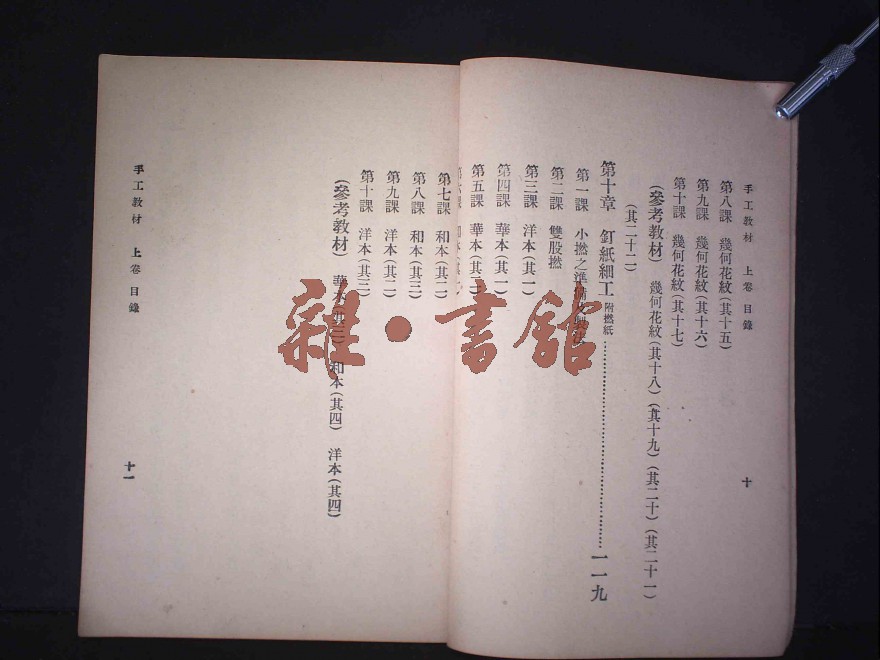 手工教材 上卷 目錄
十
第八課 幾何花紋(其十五)
第九課 幾何花紋(其十六)
第十課 幾何花紋(其十七)
(參考教材) 幾何花紋(其十八)(其十九)(其二十)(其二十一)
(其二十二)
第十章 釘紙細工 附撚紙 一一九
第一課 小撚之準
第二課 雙股撚
第三課 洋本(其一)
第四課 華本(其一)
第五課 華本(其二)
第七課 和本(其二)
第八課 和本(其三)
第九課 洋本(其二)
第十課 洋本(其三)
(參考教材) 華本(其三) 和本(其四) 洋本(其四)
手工教材 上卷 目錄
十一
雜·書館